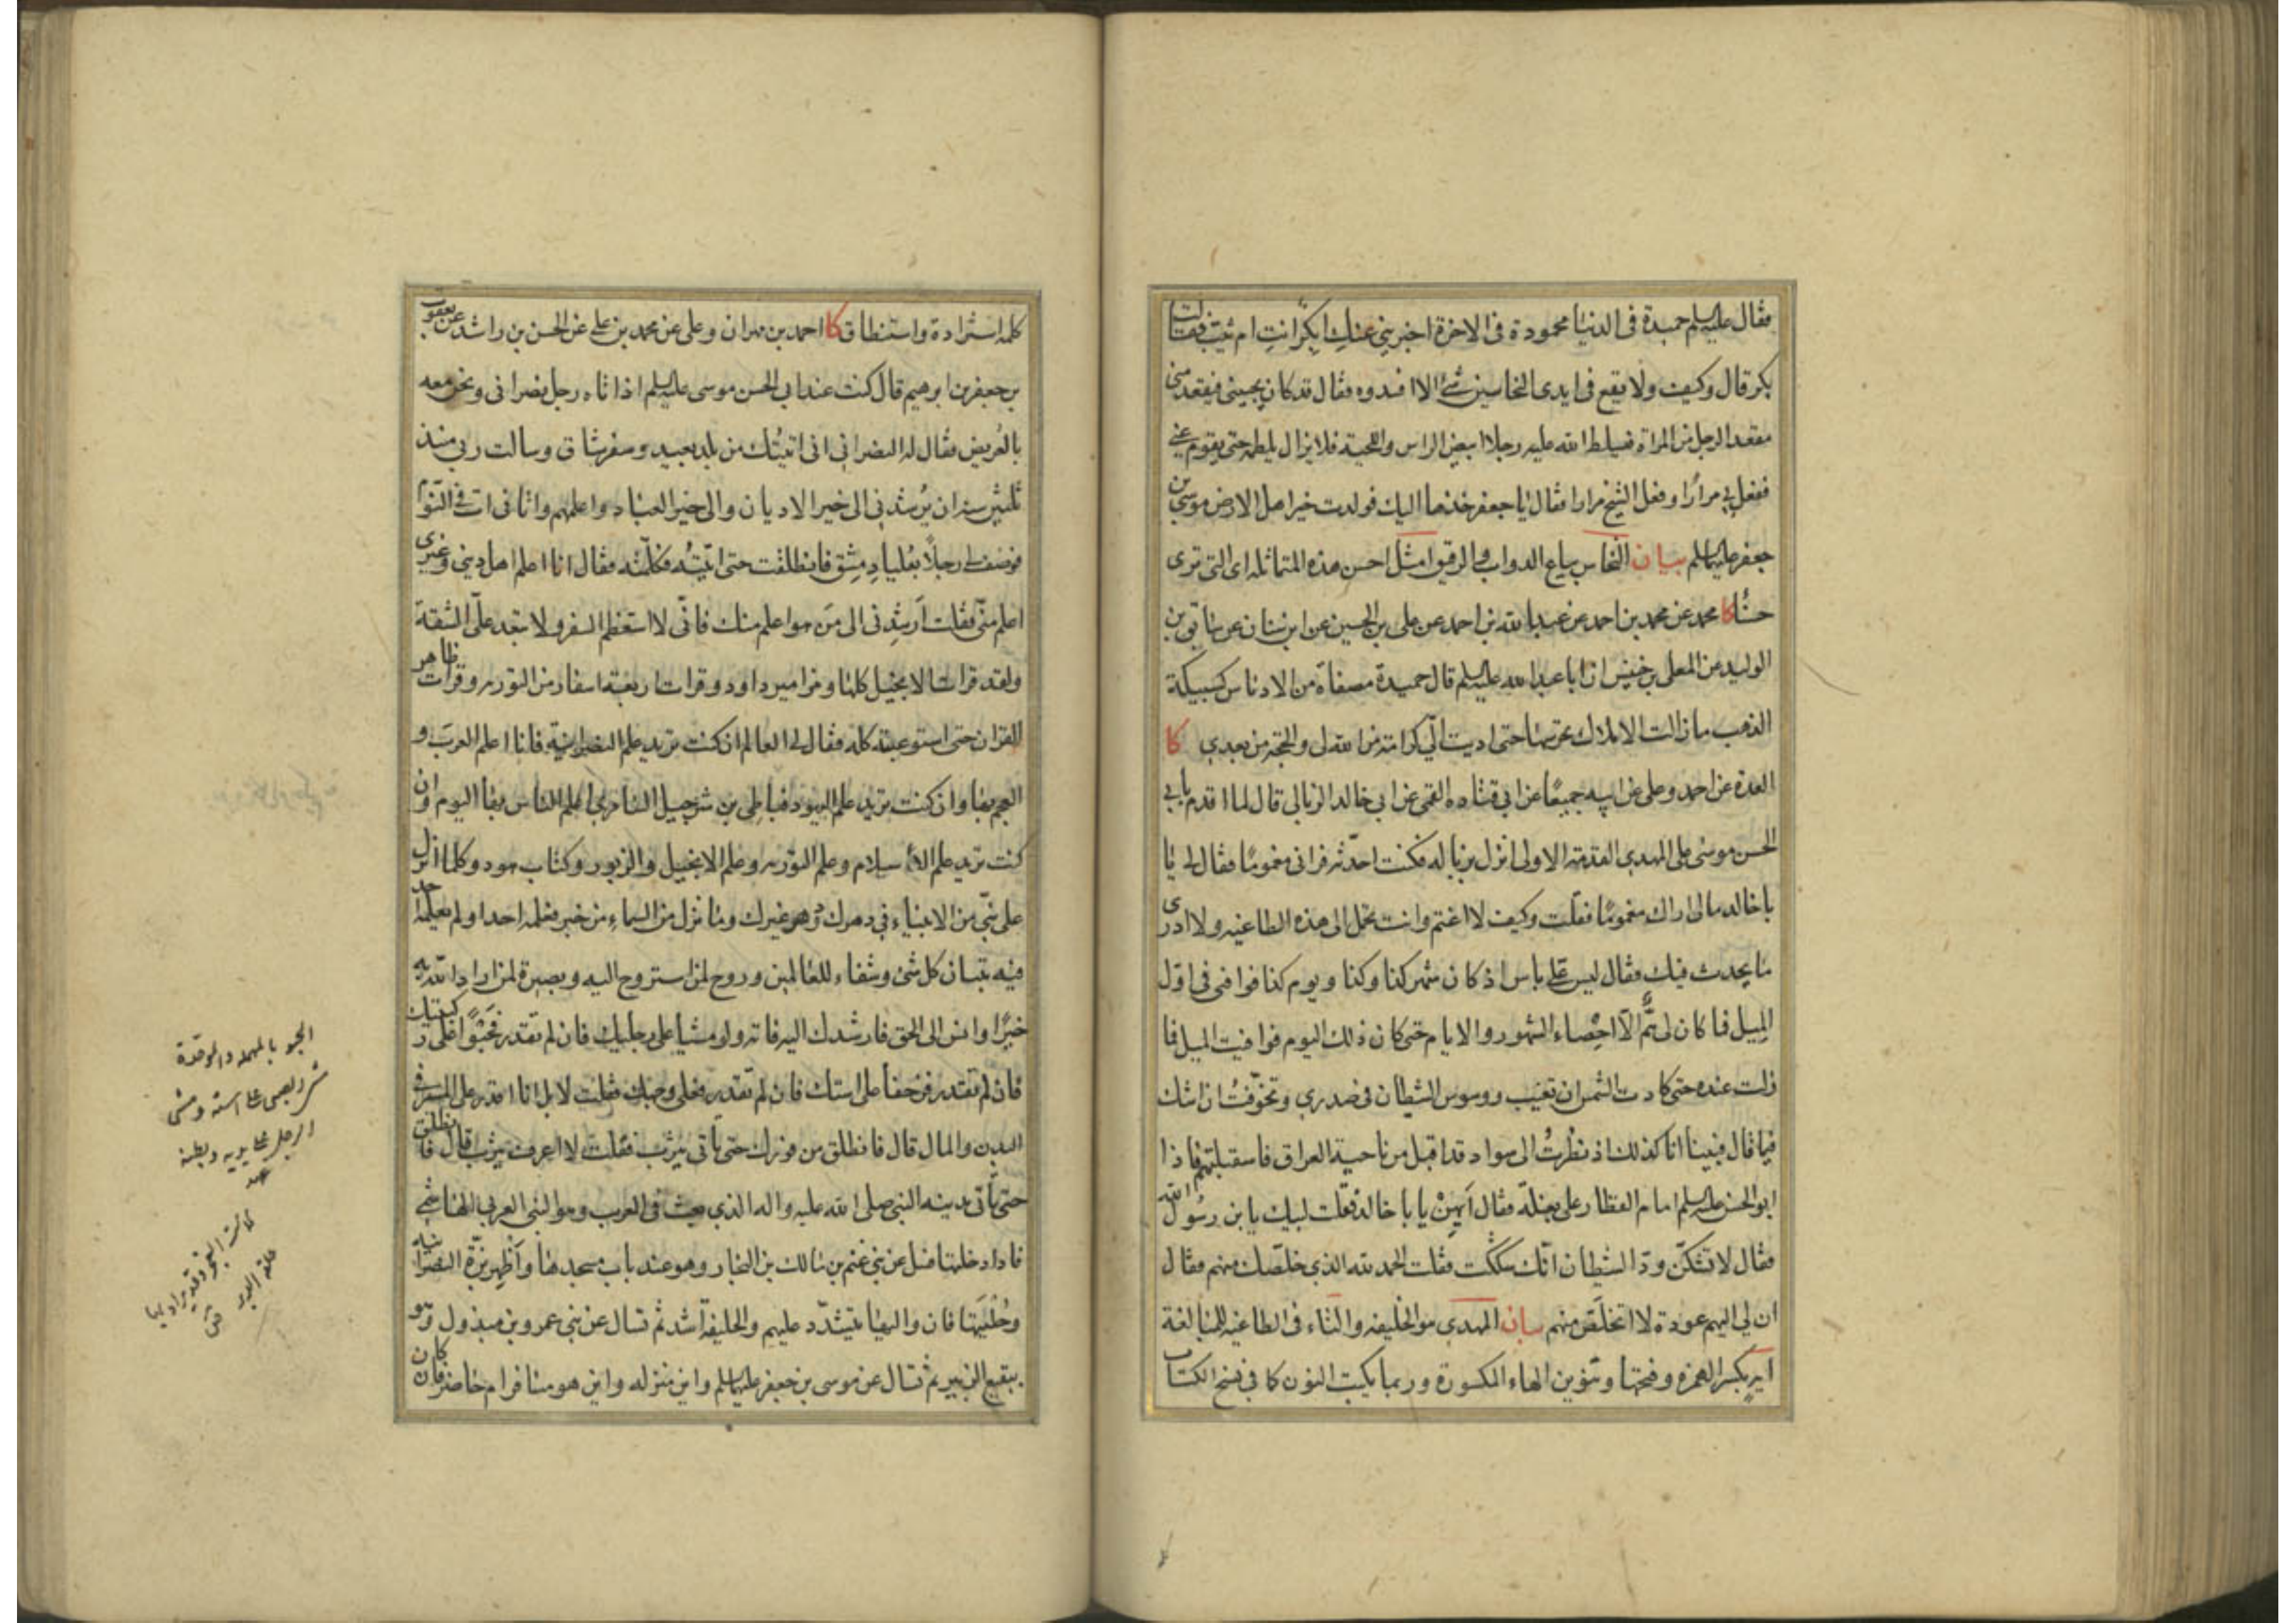 فقال عليه السلم حميدة فى الدنيا محمودة فى الاخرة اخبرينى عنك ابكرا انت ام ثيب فقالت
بكر قال وكيف ولا يقع فى ايدى النخاسين شئ الا افسدوه فقال قد كان يجيئنى فيقعد منى
مقعد الرجل من المراة فيسلط الله عليه رجلا ابيض الراس واللحية فلا يزال يلطمه حتى يقوم عنى
ففعل بى مرارا وفعل الشيخ مرارا فقال يا جعفر خذها اليك فولدت خير اهل الارض موسى بن
جعفر عليهما السلم بيان النخاس بياع الدواب والرقيق امثل احسن هذه المتماثله اى التى ترى
حسنا كا محمد عن محمد بن احمد عن عبد الله بن احمد عن على بن الحسين عن ابن سنان عن سابق بن
الوليد عن المعلى بن خنيس ان ابا عبد الله عليه السلم قال حميدة مصفاة من الادناس كسبيكة
الذهب ما زالت الاملاك تحرسها حتى اديت الى كرامة من الله لى والحجة من بعدى كا
العدة عن احمد وعلى عن ابيه جميعا عن ابى قتاده القمى عن ابى خالد الزبالى قال لما اقدم بابى
الحسن موسى على المهدى القدمة الاولى انزل بزباله فكنت احدثه فرانى مغموما فقال لى يا
با خالد مالى اراك مغموما فقلت وكيف لا اغتم وانت تحمل الى هذه الطاغيه ولا ادرى
ما يحدث فيك فقال ليس على باس اذ كان شهر كذا وكذا ويوم كذا فوافنى فى اول
الميل فما كان لى هم الا احصاء الشهور والايام حتى كان ذلك اليوم فوافيت الميل فما
زلت عنده حتى كادت الشمس ان تغيب ووسوس الشيطان فى صدرى وتخوفت ان اشك
فيما قال فبينا انا كذلك اذ نظرت الى سواد قد اقبل من ناحية العراق فاستقبلتهم فاذا
ابو الحسن عليه السلم امام القطار على بغلة فقال ايهن يا با خالد فقلت لبيك يا ابن رسول الله
فقال لا تشكن ود الشيطان انك شككت فقلت الحمد لله الذى خلصك منهم فقال
ان لى اليهم عودة لا اتخلص منهم بيان المهدى هو الخليفه والتاء فى الطاغيه للمبالغة
ايه بكسر الهمزه وفتحها وتنوين الهاء المكسورة وربما يكتب النون كا فى نسخ الكتاب
كلمه استزادة واستنطاق كا احمد بن مهران وعلى عن محمد بن على عن الحسن بن راشد عن يعقوب
بن جعفر بن ابرهيم قال كنت عند ابى الحسن موسى عليه السلم اذ اتاه رجل نصرانى ونحن معه
بالعريض فقال له النصرانى انى اتيتك من بلد بعيد وسفر شاق وسالت ربى منذ
ثلثين سنه ان يرشدنى الى خير الاديان والى خير العباد واعلمهم واتانى ات فى النوم
فوصف لى رجلا بعليا دمشق فانطلقت حتى اتيته فكلمته فقال انا اعلم اهل دينى وغيرى
اعلم منى فقلت ارشدنى الى من هو اعلم منك فانى لا استعظم السفر ولا تبعد على الشقة
ولقد قرات الانجيل كلها ومزامير داود وقرات اربعة اسفار من التوريه وقرات ظاهر
القران حتى استوعبته كله فقال لى العالم ان كنت تريد علم النصرانية فانا اعلم العرب و
العجم بها وان كنت تريد علم اليهود فباطى بن شرحبيل السامرى اعلم الناس بها اليوم وان
كنت تريد علم الاسلام وعلم التوريه وعلم الانجيل والزبور وكتاب هود وكلما انزل
على نبى من الانبياء فى دهرك ودهر غيرك وما نزل من السماء من خبر فعلمه احد اولم يعلم به احد
فيه تبيان كل شئ وشفاء للعالمين وروح لمن استروح اليه وبصيرة لمن اراد الله به
خيرا وانس الى الحق فارشدك اليه فاته ولو مشيا على رجليك فان لم تقدر فحبوا على ركبتيك
فان لم تقدر فزحفا على استك فان لم تقدر فعلى وجهك فقلت لا بل انا اقدر على المسير فى
البدن والمال قال فانطلق من فورك حتى تاتى يثرب فقلت لا اعرف يثرب قال فانطلق
حتى تاتى مدينه النبى صلى الله عليه واله الذى بعث فى العرب وهو النبى العربى الهاشمى
فاذا دخلتها فسل عن بنى غنم بن مالك بن النجار وهو عند باب مسجدها واظهر بزة النصرانية
وحليتها فان واليها يتشدد عليهم والخليفة اشد ثم تسال عن بنى عمرو بن مبذول وهو
ببقيع الزبير ثم تسال عن موسى بن جعفر عليهما السلم واين منزله واين هو مسافر ام حاضر فان كان
الحبو بالمهمله والموحدة
الرجل على يديه وبطنه